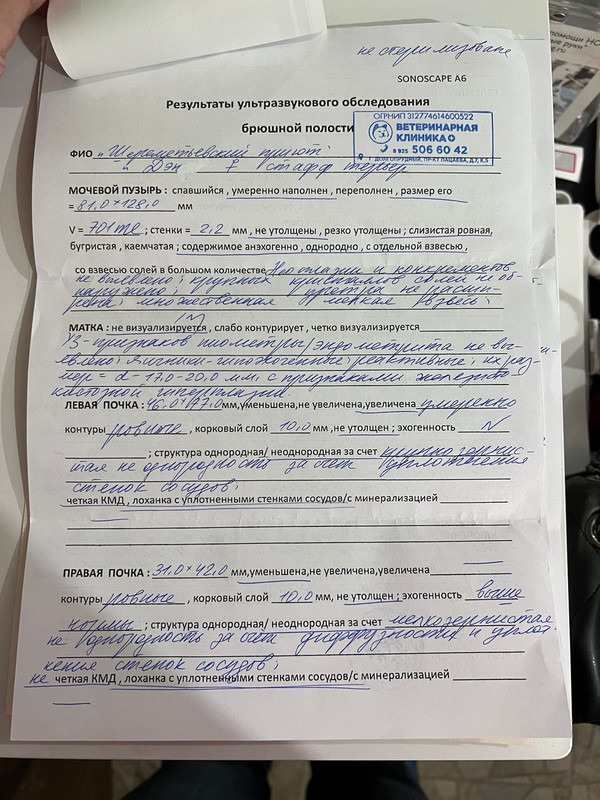 не стерилизована
SONOSCAPE A6
Результаты ультразвукового обследования
брюшной полости
ОГРНИП 312774614600522
ВЕТЕРИНАРНАЯ
КЛИНИКА
8 925 506 60 42
Г. ДОЛГОПРУДНЫЙ, ПР-КТ ПАЦАЕВА, Д.7, К.5
ФИО "Шереметьевский приют"
"Дэн ♀ стафф терьер
МОЧЕВОЙ ПУЗЫРЬ : спавшийся , умеренно наполнен , переполнен , размер его
= 81,0*128,0 мм
V = 701 мл ; стенки = 2,2 мм , не утолщены , резко утолщены ; слизистая ровная,
бугристая , каемчатая ; содержимое анэхогенно , однородно , с отдельной взвесью ,
со взвесью солей в большом количестве Неоплазии и конкрементов
не выявлено; крупных кристаллов солей не об-
наружено; уретра не расши-
рена; множественная мелкая взвесь;
МАТКА : не визуализируется , слабо контурирует , четко визуализируется
УЗ-признаков пиометры/эндометрита не вы-
явлено; Яичники-гипоэхогенные; реактивные; их раз-
мер = d- 17,0-20,0 мм; с признаками железисто
кистозной гиперплазии.
ЛЕВАЯ ПОЧКА : 46,0*77,0 мм,уменьшена,не увеличена,увеличена умеренно
контуры ровные , корковый слой 10,0 мм,не утолщен ; эхогенность N
; структура однородная/ неоднородная за счет крупнозернис-
тая неоднородность за счет уплотнения
стенок сосудов;
четкая КМД , лоханка с уплотненными стенками сосудов/с минерализацией
ПРАВАЯ ПОЧКА : 31,0*42,0 мм,уменьшена,не увеличена,увеличена
контуры ровные , корковый слой 10,0 мм, не утолщен ; эхогенность выше
нормы ; структура однородная/ неоднородная за счет мелкозернистая
неоднородность за счет диффузности и уплот-
нения стенок сосудов;
не четкая КМД , лоханка с уплотненными стенками сосудов/с минерализацией